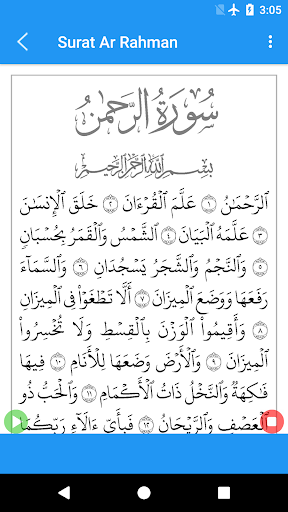 3:05
Surat Ar Rahman
سُورَةُ الرَّحْمَٰن
بِسْمِ اللَّهِ الرَّحْمَٰنِ الرَّحِيمِ
ٱلرَّحْمَٰنُ ١ عَلَّمَ ٱلْقُرْءَانَ ٢ خَلَقَ ٱلْإِنسَٰنَ
٣ عَلَّمَهُ ٱلْبَيَانَ ٤ ٱلشَّمْسُ وَٱلْقَمَرُ بِحُسْبَانٍ
٥ وَٱلنَّجْمُ وَٱلشَّجَرُ يَسْجُدَانِ ٦ وَٱلسَّمَآءَ
رَفَعَهَا وَوَضَعَ ٱلْمِيزَانَ ٧ أَلَّا تَطْغَوْا۟ فِى ٱلْمِيزَانِ
٨ وَأَقِيمُوا۟ ٱلْوَزْنَ بِٱلْقِسْطِ وَلَا تُخْسِرُوا۟
ٱلْمِيزَانَ ٩ وَٱلْأَرْضَ وَضَعَهَا لِلْأَنَامِ ١٠ فِيهَا
فَٰكِهَةٌ وَٱلنَّخْلُ ذَاتُ ٱلْأَكْمَامِ ١١ وَٱلْحَبُّ ذُو
ٱلْعَصْفِ وَٱلرَّيْحَانُ ١٢ فَبِأَىِّ ءَالَآءِ رَبِّكُمَا